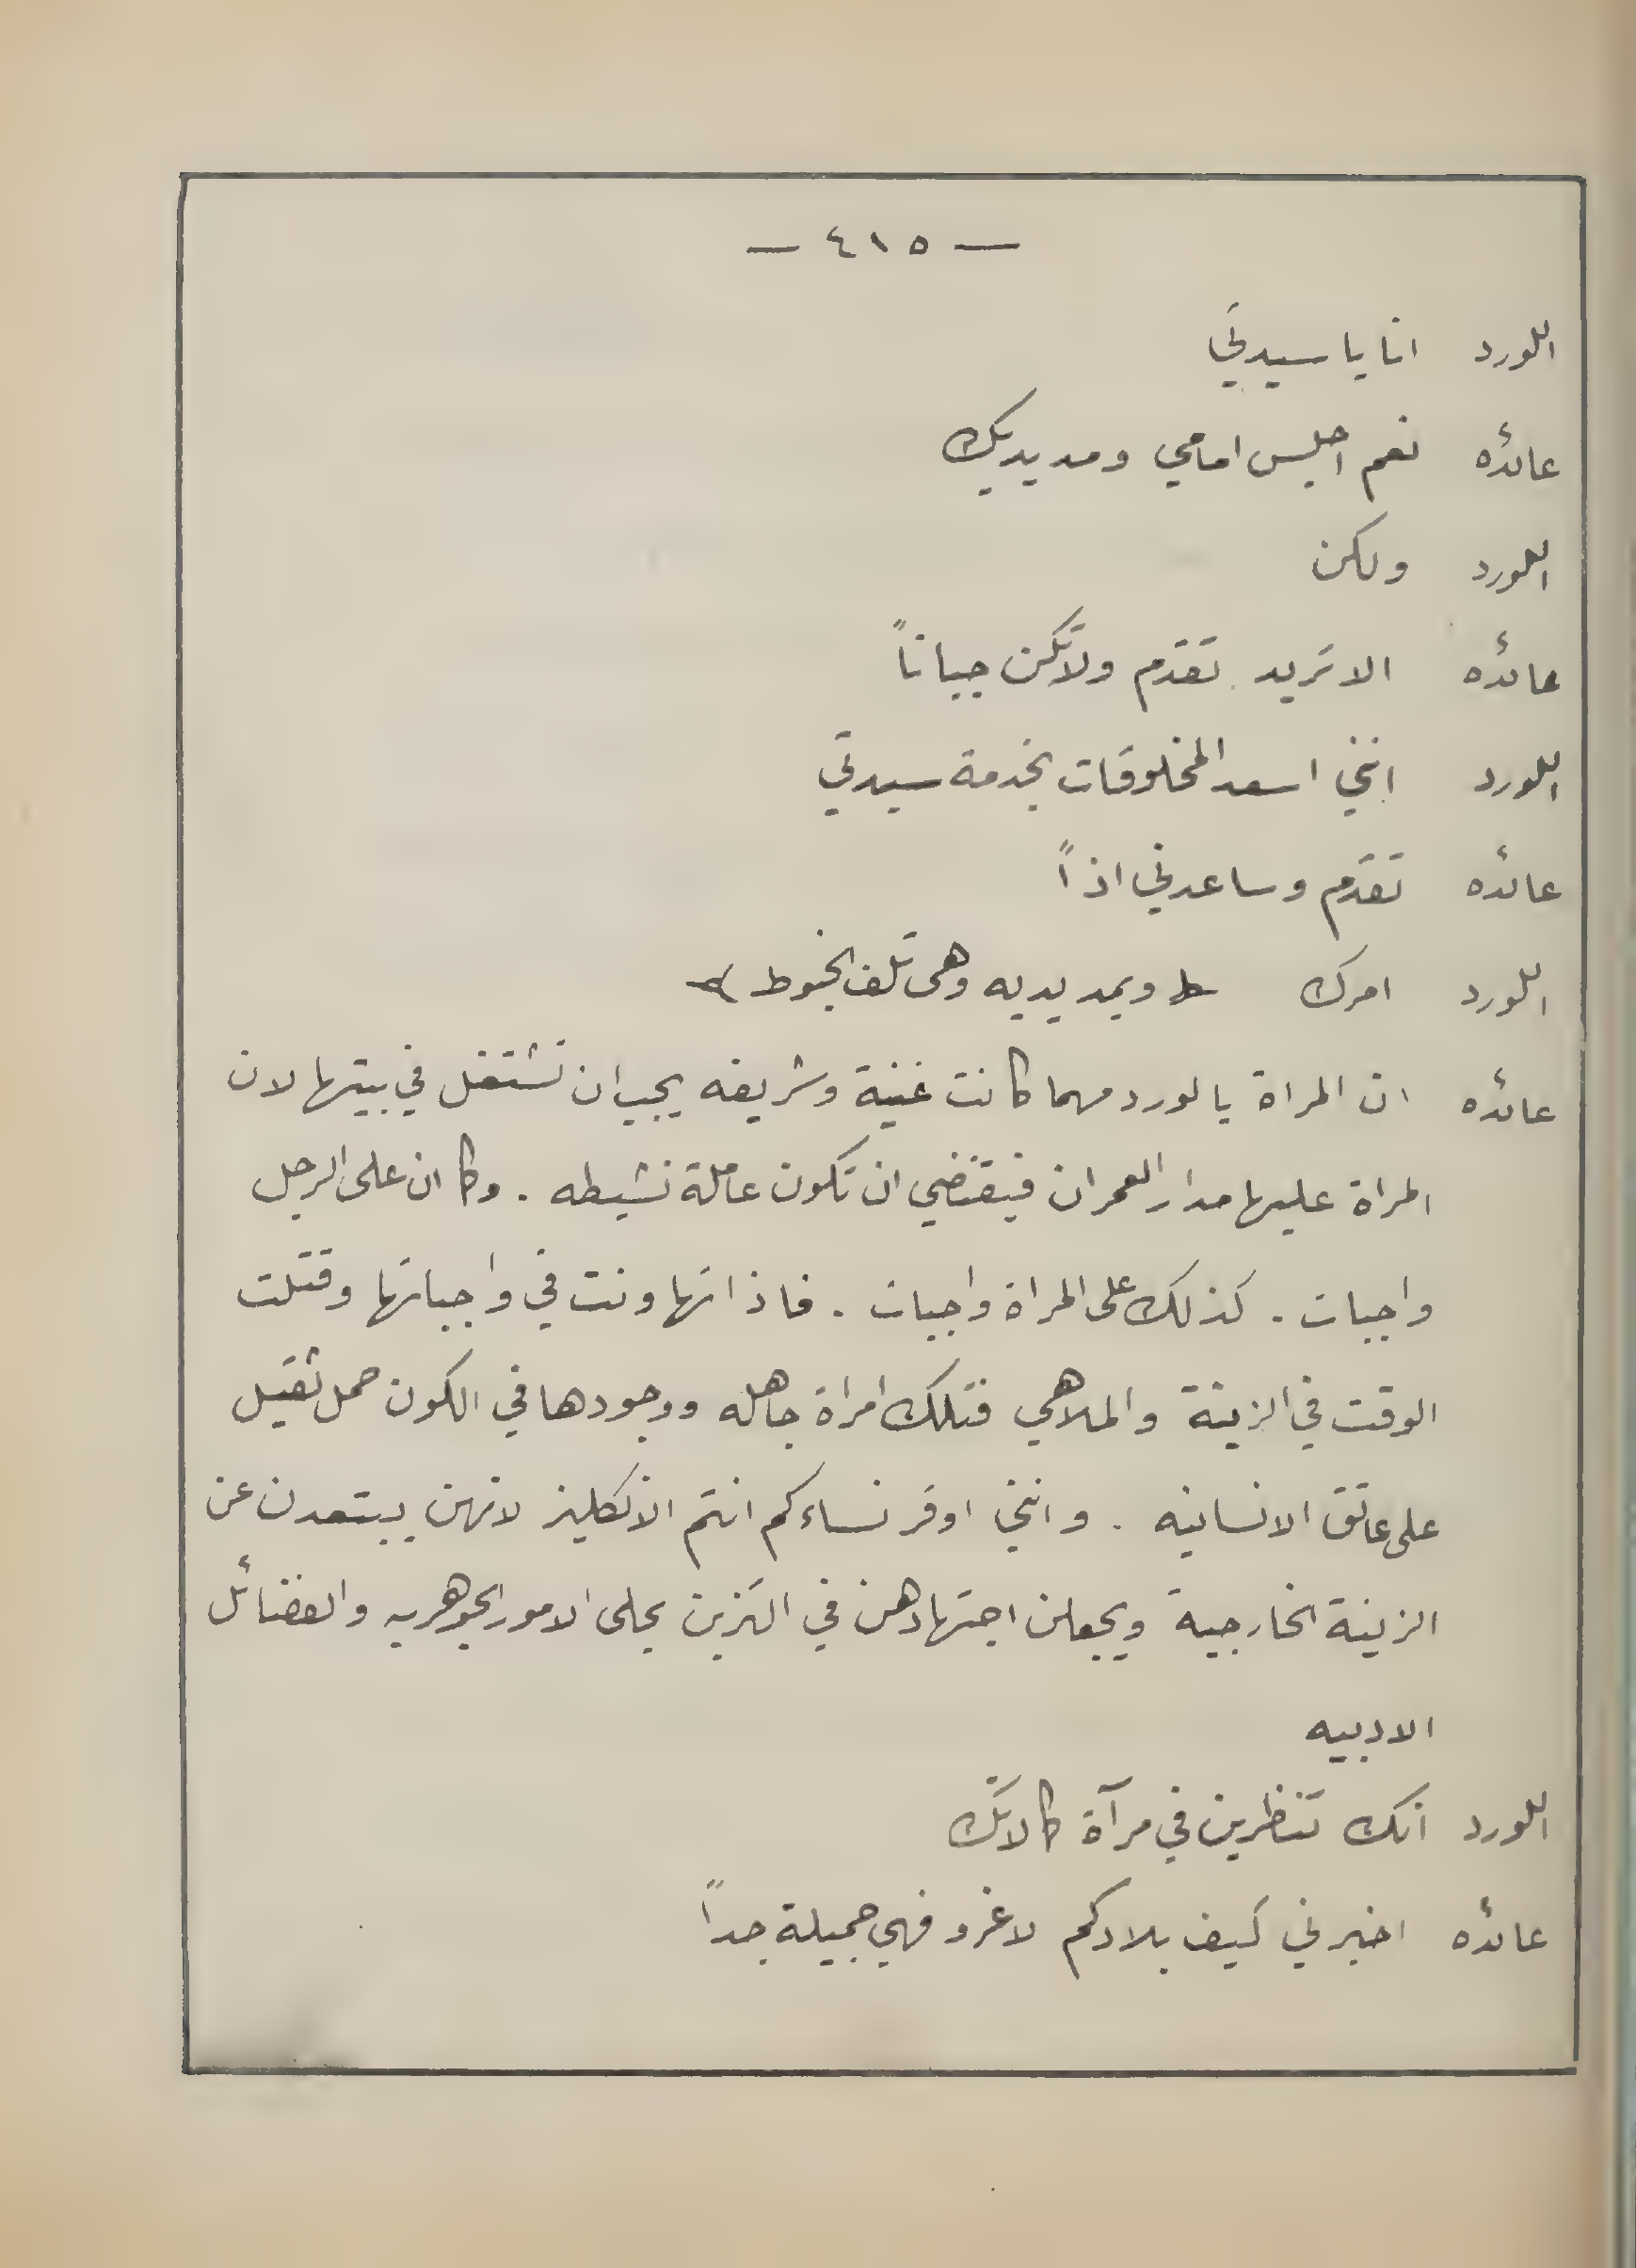 — ٤١٥ —
اللورد انا يا سيدتي
عائده نعم اجلس امامي ومد يديك
اللورد ولكن
عائده الا تريد . تقدم ولا تكن جباناً
اللورد انني اسعد المخلوقات بخدمة سيدتي
عائده تقدم وساعدني اذاً
اللورد امرك ( ويمد يديه وهى تلف الخيوط )
عائده ان المراة يا لورد مهما كانت غنية وشريفه يجب ان تشتغل في بيتها لان
المراة عليها مدار العمران فيقتضي ان تكون عاملة نشيطه . وكما ان على الرجل
واجبات . كذلك على المراة واجبات . فاذا تهاونت في واجباتها وقتلت
الوقت في الزينة والملاهي فتلك امراة جاهله ووجودها في الكون حمل ثقيل
على عاتق الانسانيه . وانني اوقر نساءكم انتم الانكليز لانهن يبتعدن عن
الزينة الخارجية ويجعلن اجتهادهن في التزين بحلى الامور الجوهريه والفضائل
الادبيه
اللورد انك تنظرين في مرآة كمالاتك
عائده اخبرني كيف بلادكم لا غرو فهي جميلة جداً